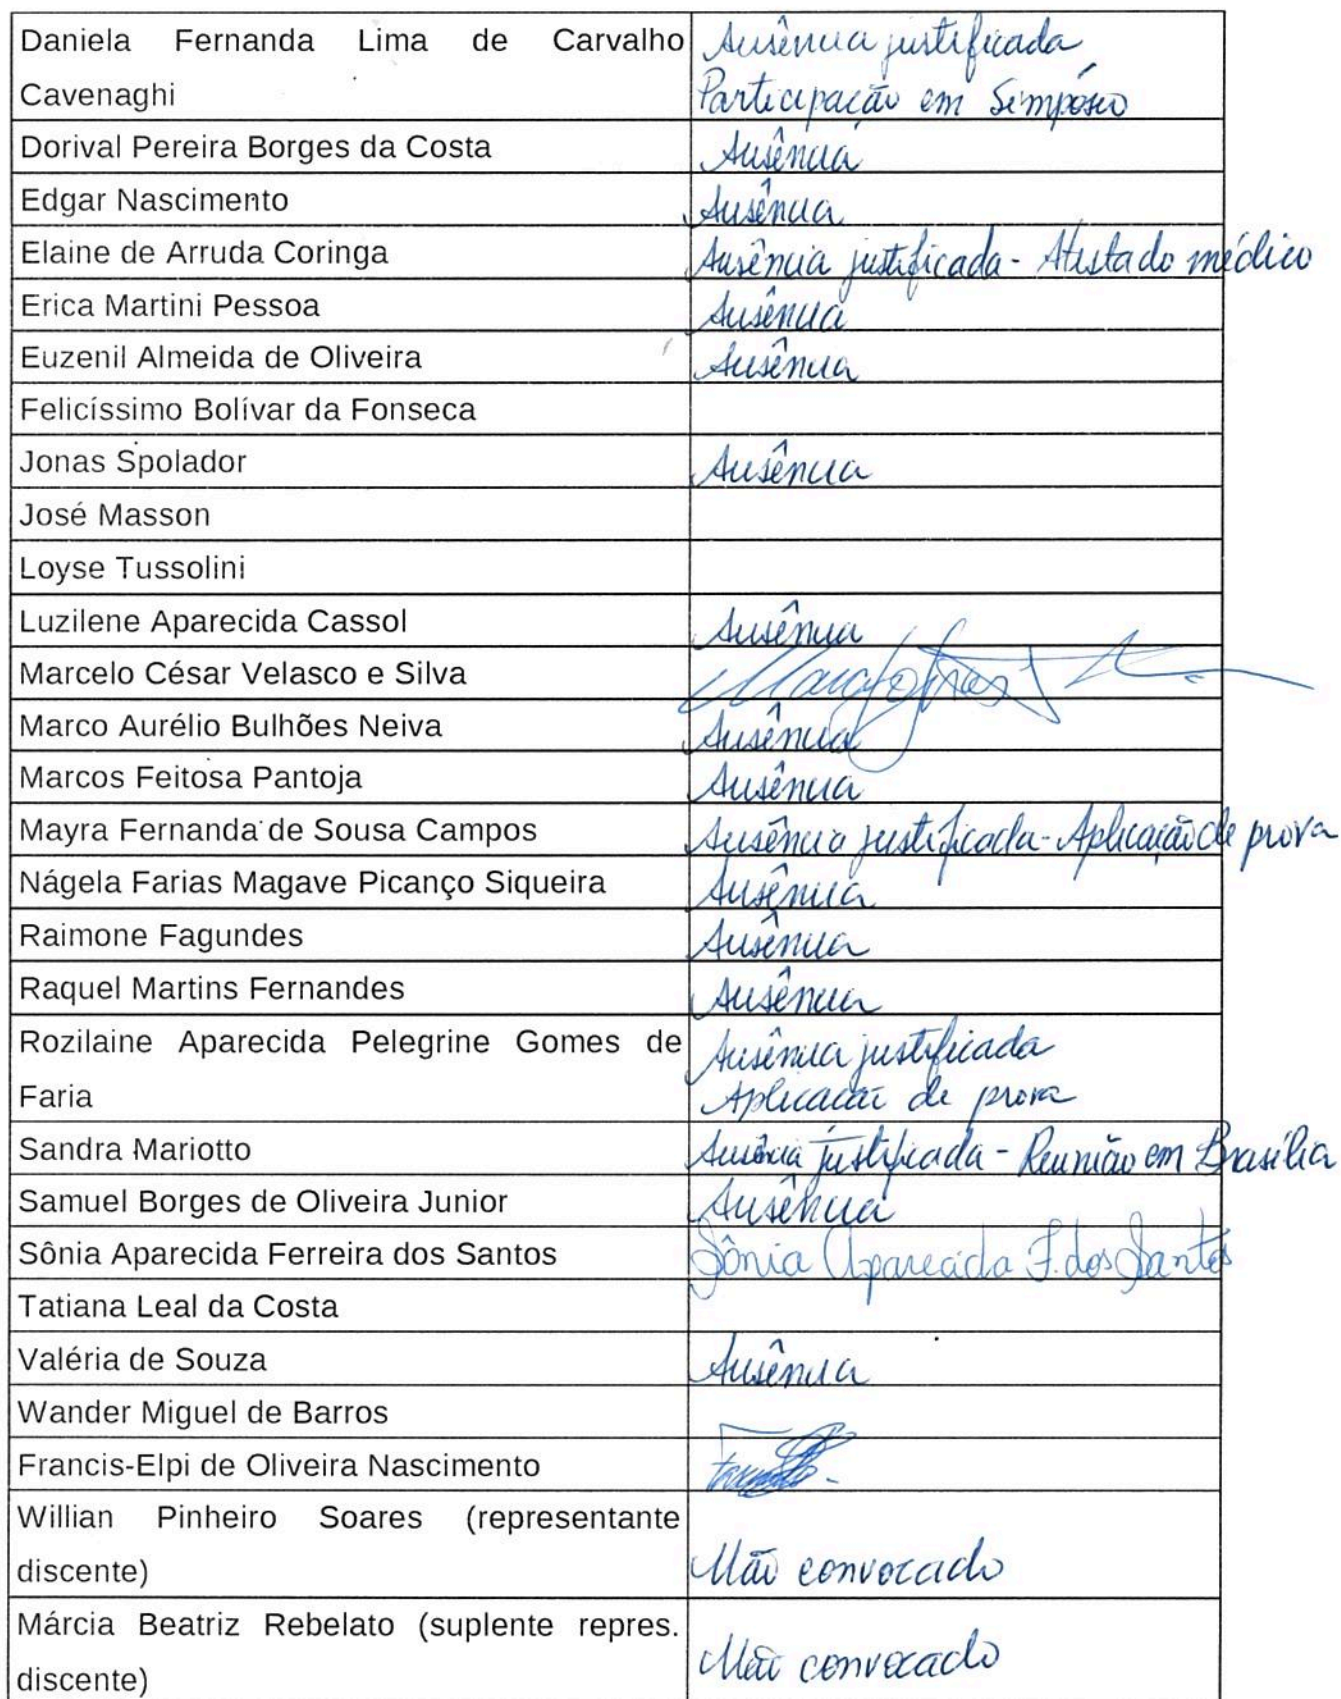 Daniela Fernanda Lima de Carvalho Ausência justificada
Cavenaghi Participação em Simpósio
Dorival Pereira Borges da Costa Ausência
Edgar Nascimento Ausência
Elaine de Arruda Coringa Ausência justificada - Atestado médico
Erica Martini Pessoa Ausência
Euzenil Almeida de Oliveira Ausência
Felicíssimo Bolívar da Fonseca
Jonas Spolador Ausência
José Masson
Loyse Tussolini
Luzilene Aparecida Cassol Ausência
Marcelo César Velasco e Silva
Marco Aurélio Bulhões Neiva Ausência
Marcos Feitosa Pantoja Ausência
Mayra Fernanda de Sousa Campos Ausência justificada - Aplicação de prova
Nágela Farias Magave Picanço Siqueira Ausência
Raimone Fagundes Ausência
Raquel Martins Fernandes Ausência
Rozilaine Aparecida Pelegrine Gomes de Ausência justificada
Faria Aplicação de prova
Sandra Mariotto Ausência Justificada - Reunião em Brasília
Samuel Borges de Oliveira Junior Ausência
Sônia Aparecida Ferreira dos Santos Sônia Aparecida F. dos Santos
Tatiana Leal da Costa
Valéria de Souza Ausência
Wander Miguel de Barros
Francis-Elpi de Oliveira Nascimento
Willian Pinheiro Soares (representante
discente) Não convocado
Márcia Beatriz Rebelato (suplente repres.
discente) Não convocado